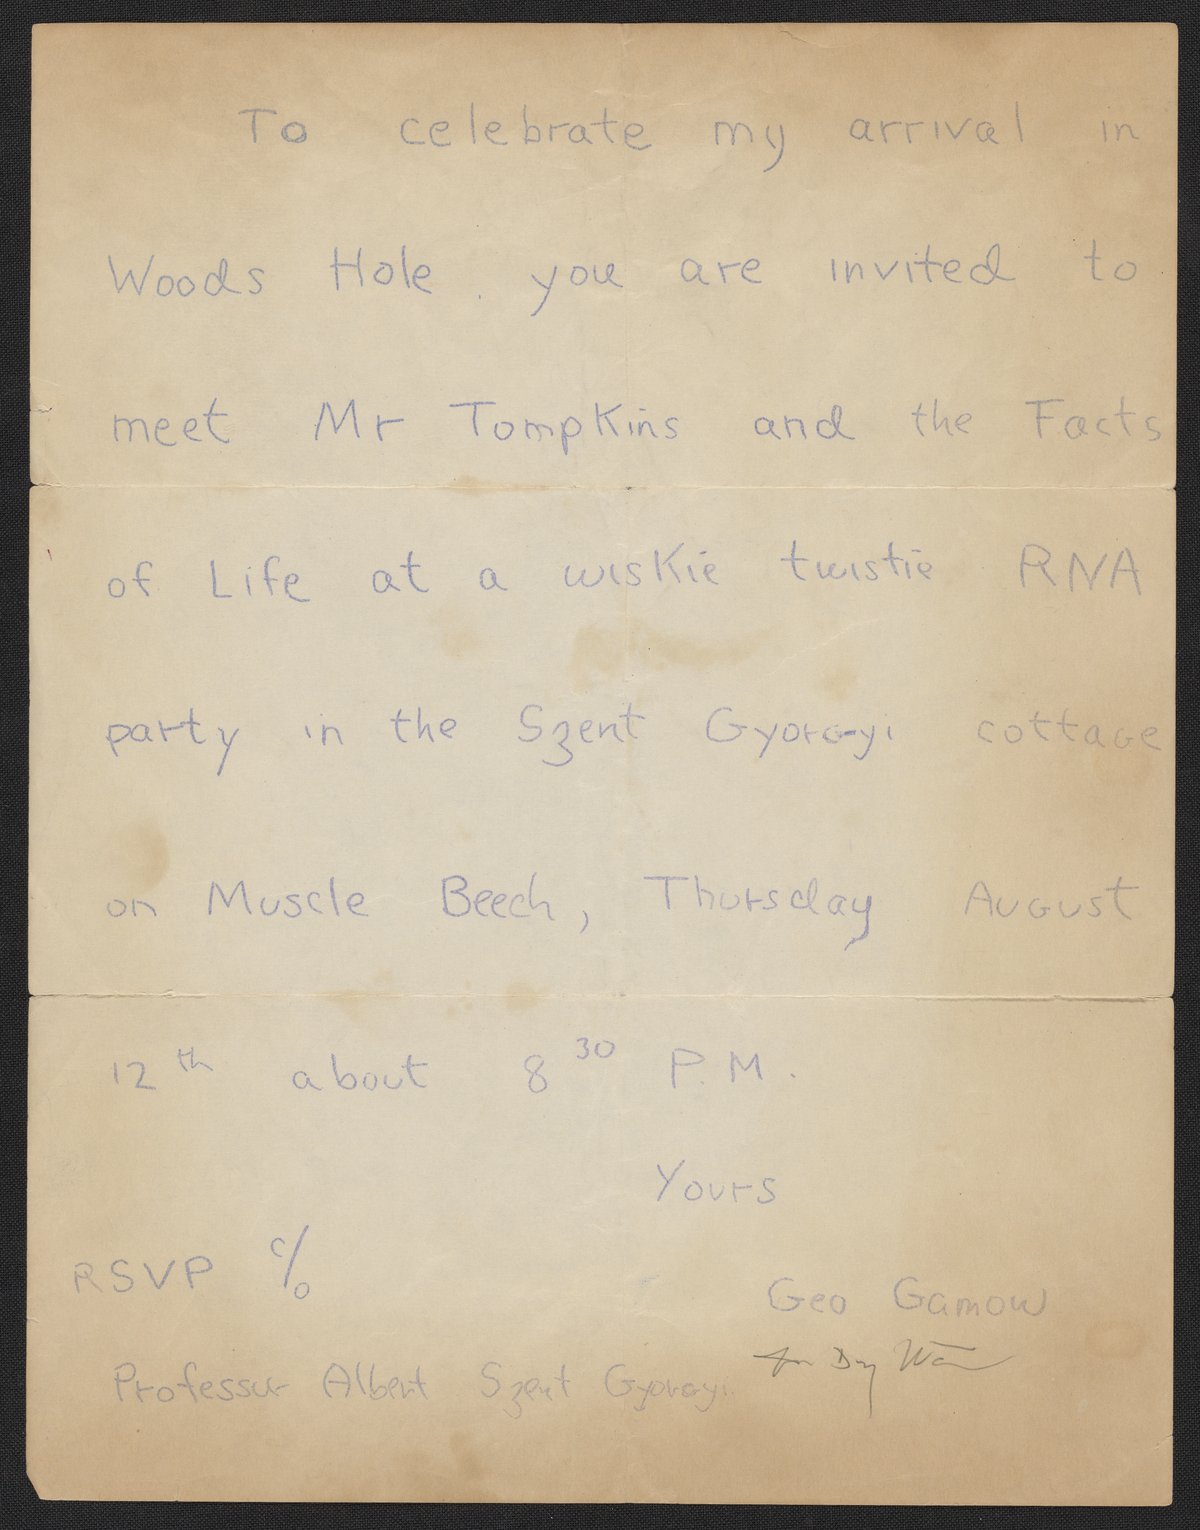 To celebrate my arrival in
Woods Hole. you are invited to
meet Mr Tompkins and the Facts
of Life at a wiskie twistie RNA
party in the Szent Gyorgyi cottage
on Muscle Beech, Thursday August
12th about 8 30 P.M.
Yours
RSVP c/o
Geo Gamow
Professur Albert Szent Gyorgyi